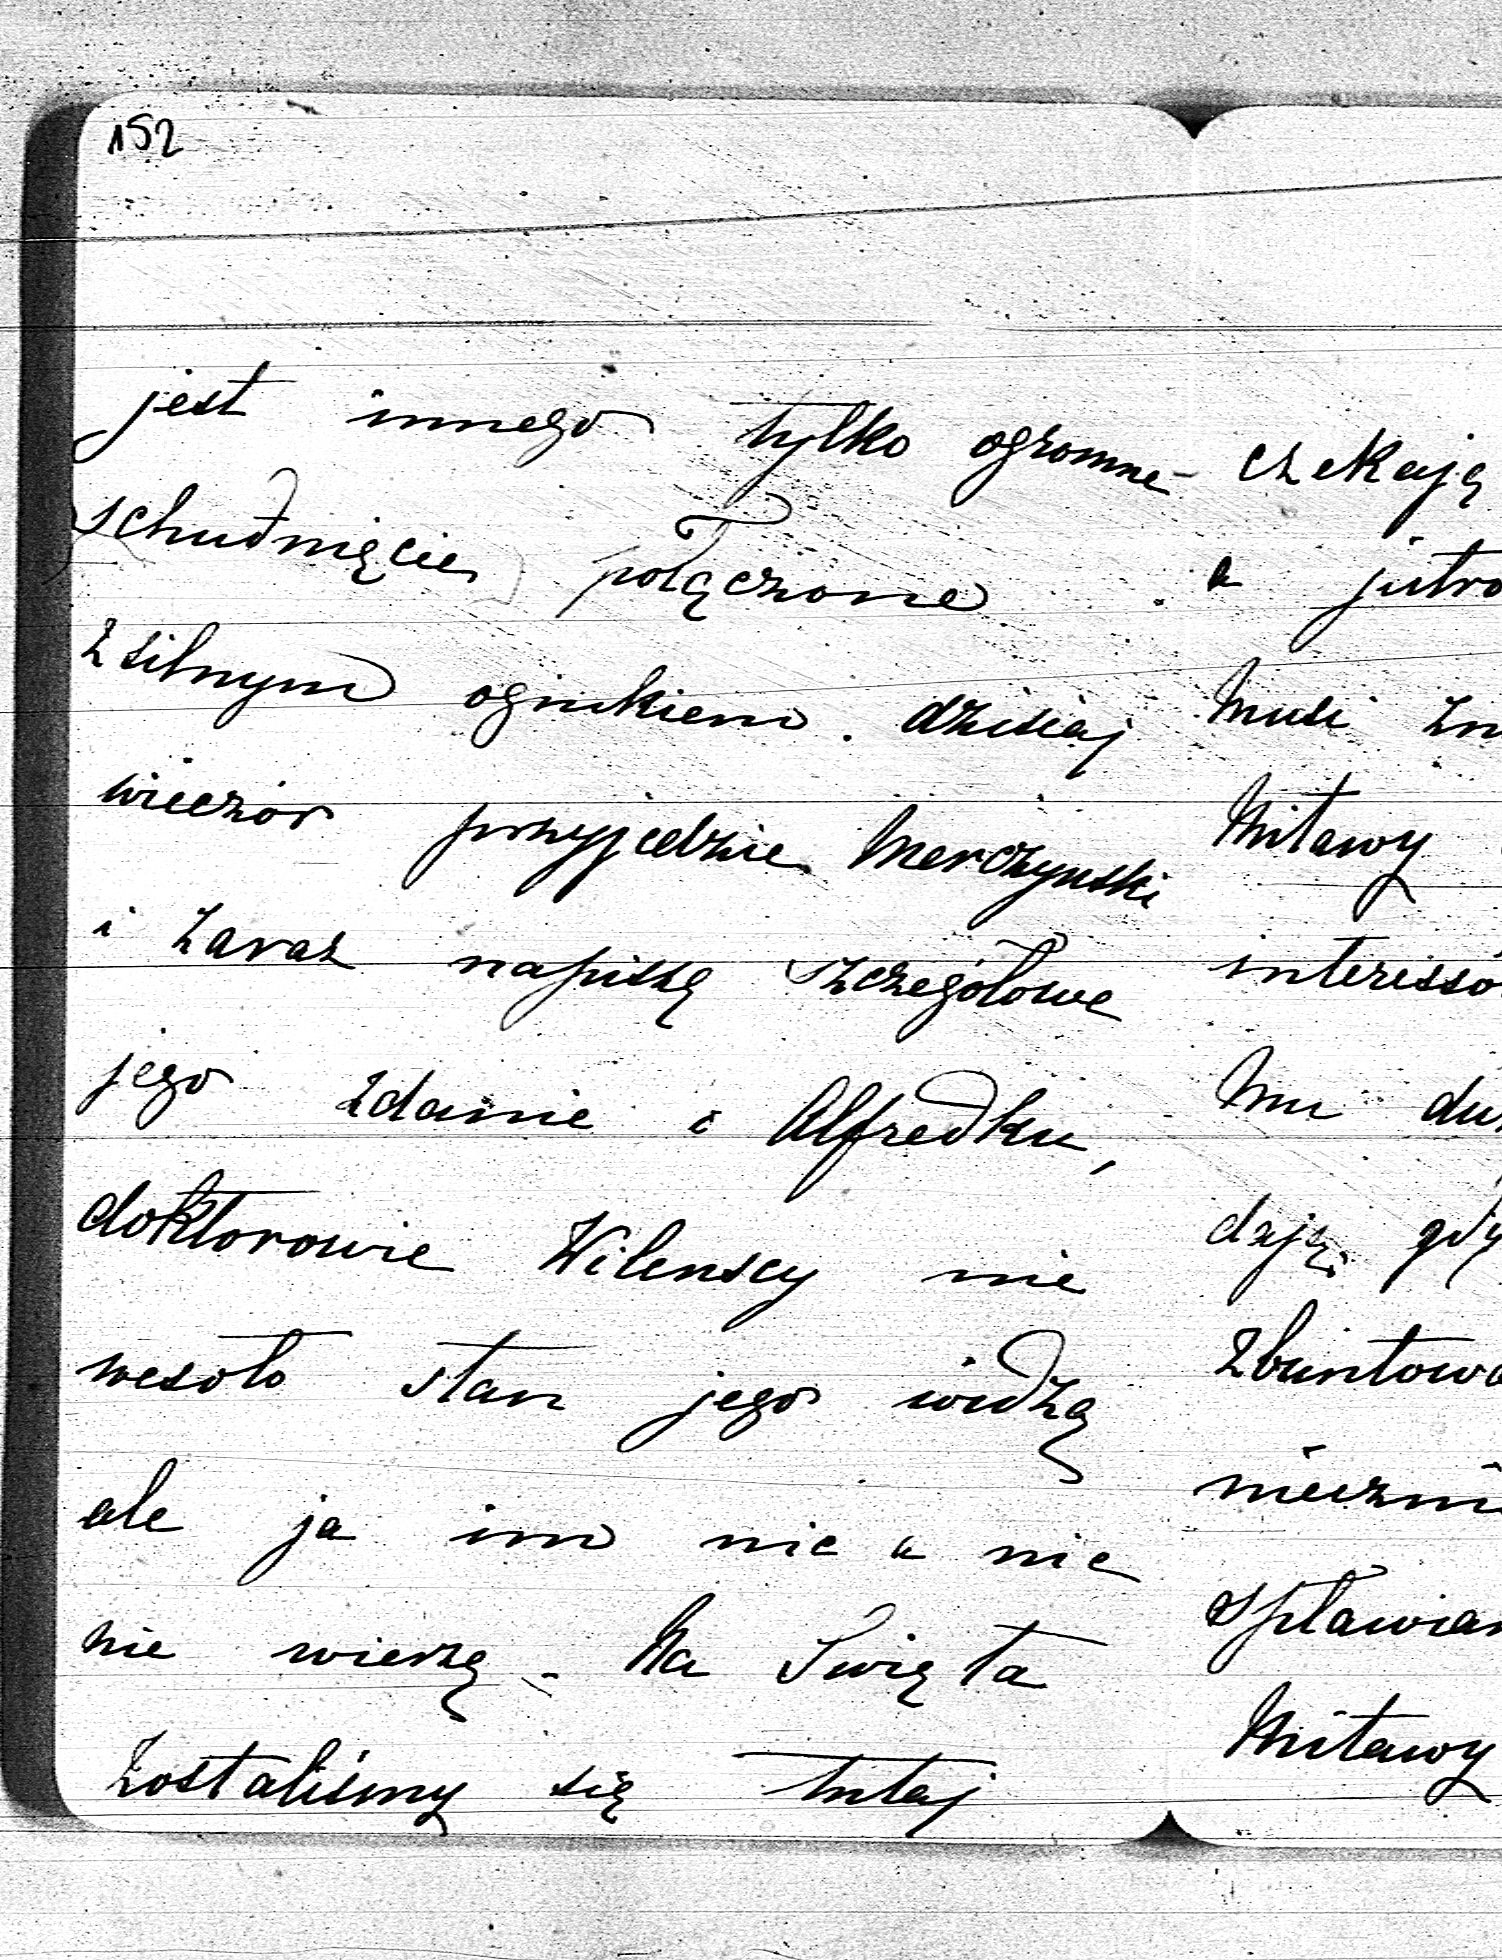 152
jest innego tylko ogromne
schudnięcie połączone
z silnym ognikiem. dzisiaj
wieczór przyjedzie Merczynski
i zaraz napiszę szczegółowe
jego zdanie o Alfredku,
doktorowie Wilenscy nie
wesoło stan jego widzą
ale ja im nic a nic
nie wierzę. Na Swięta
zostaliśmy się tutaj
czekają
a jutro
musi
Mitawy
mu
gdy
Mitawy